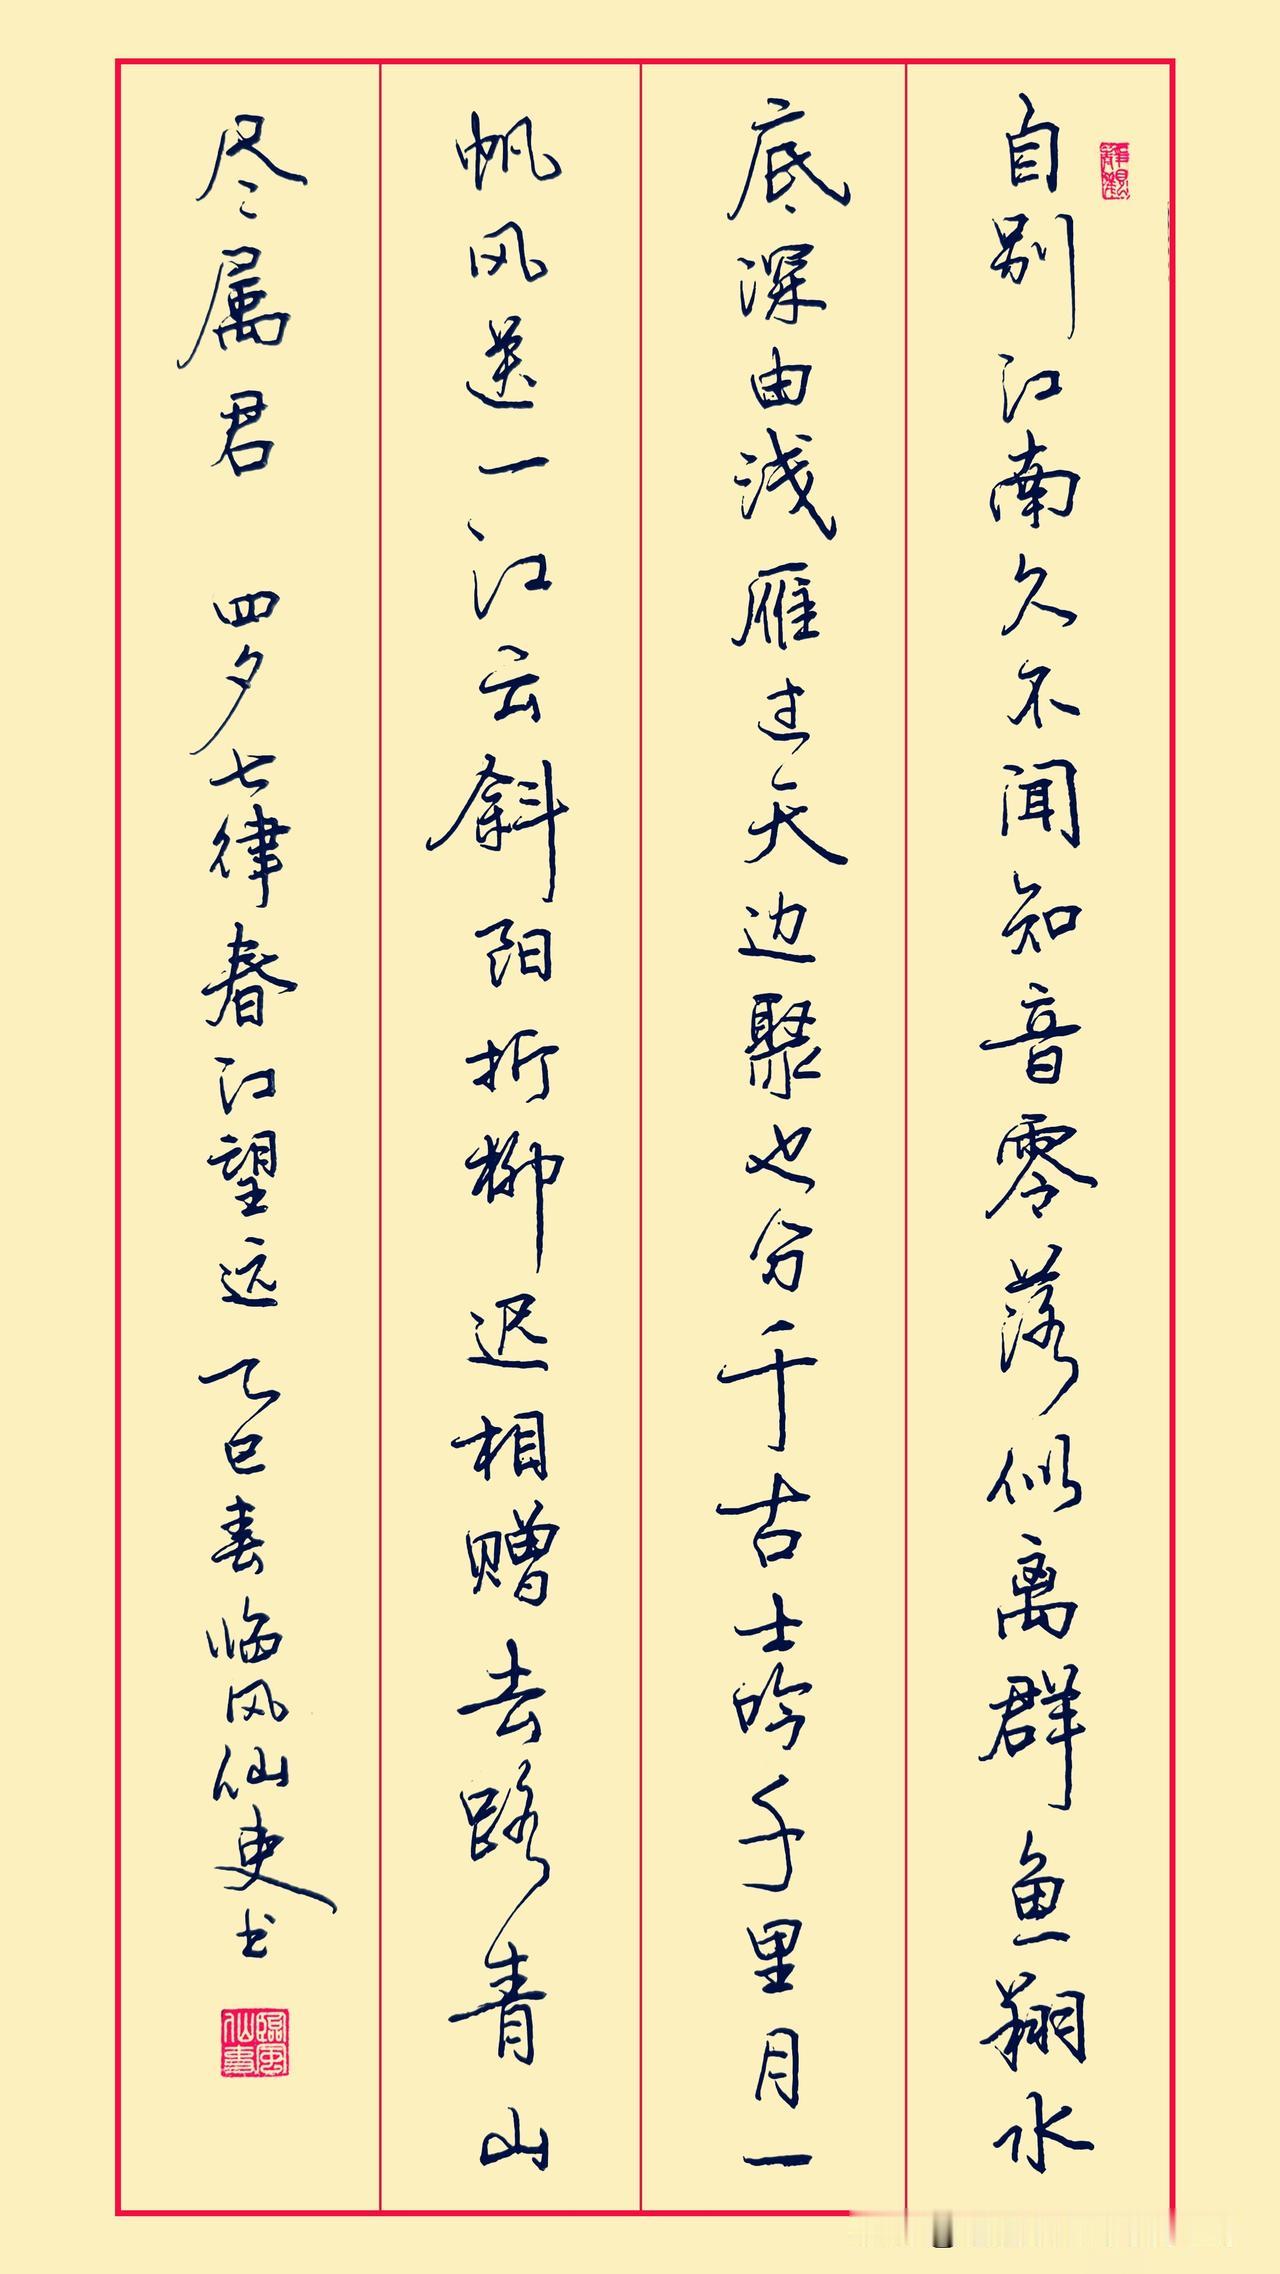 自别江南久不闻知音零落似离群鱼翔水
底深由浅雁过天边聚也分千古士吟千里月一
帆风送一江云斜阳折柳迟相赠去路青山
尽属君 四夕七律春江望远 乙巳春临风仙吏书